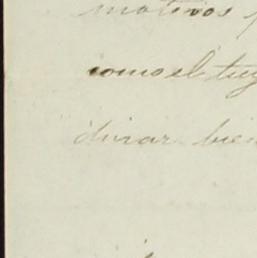 motivos
como el tuy
durar bien